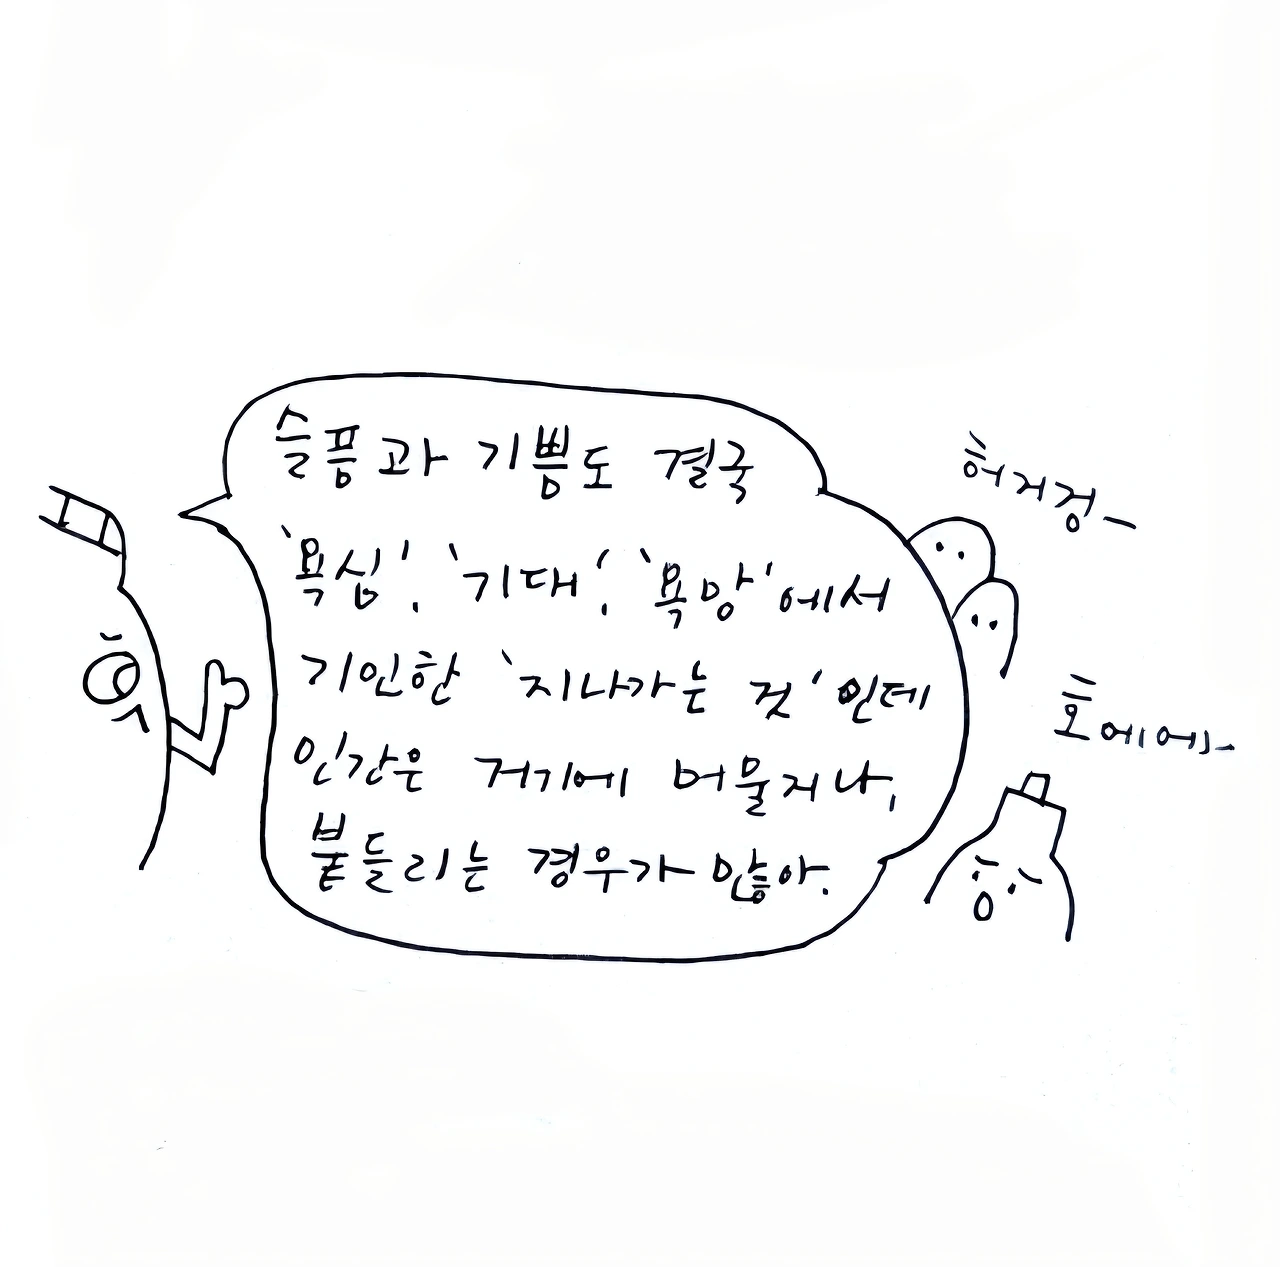 슬픔과 기쁨도 결국
'욕심', '기대', '욕망'에서
기인한 '지나가는 것'인데
인간은 거기에 머물거나,
붙들리는 경우가 많아.
허거겅-
호에에-